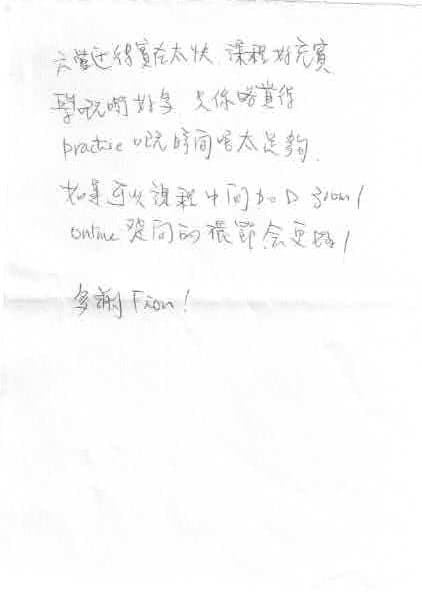 六堂过得實在太快 課程好充實
學咗嘢好多 只係略覺得
practice 嘅時間唔太足夠.
如果可以課程中間加D zoom/
online 發問的環節会更好!
多謝 Fion!